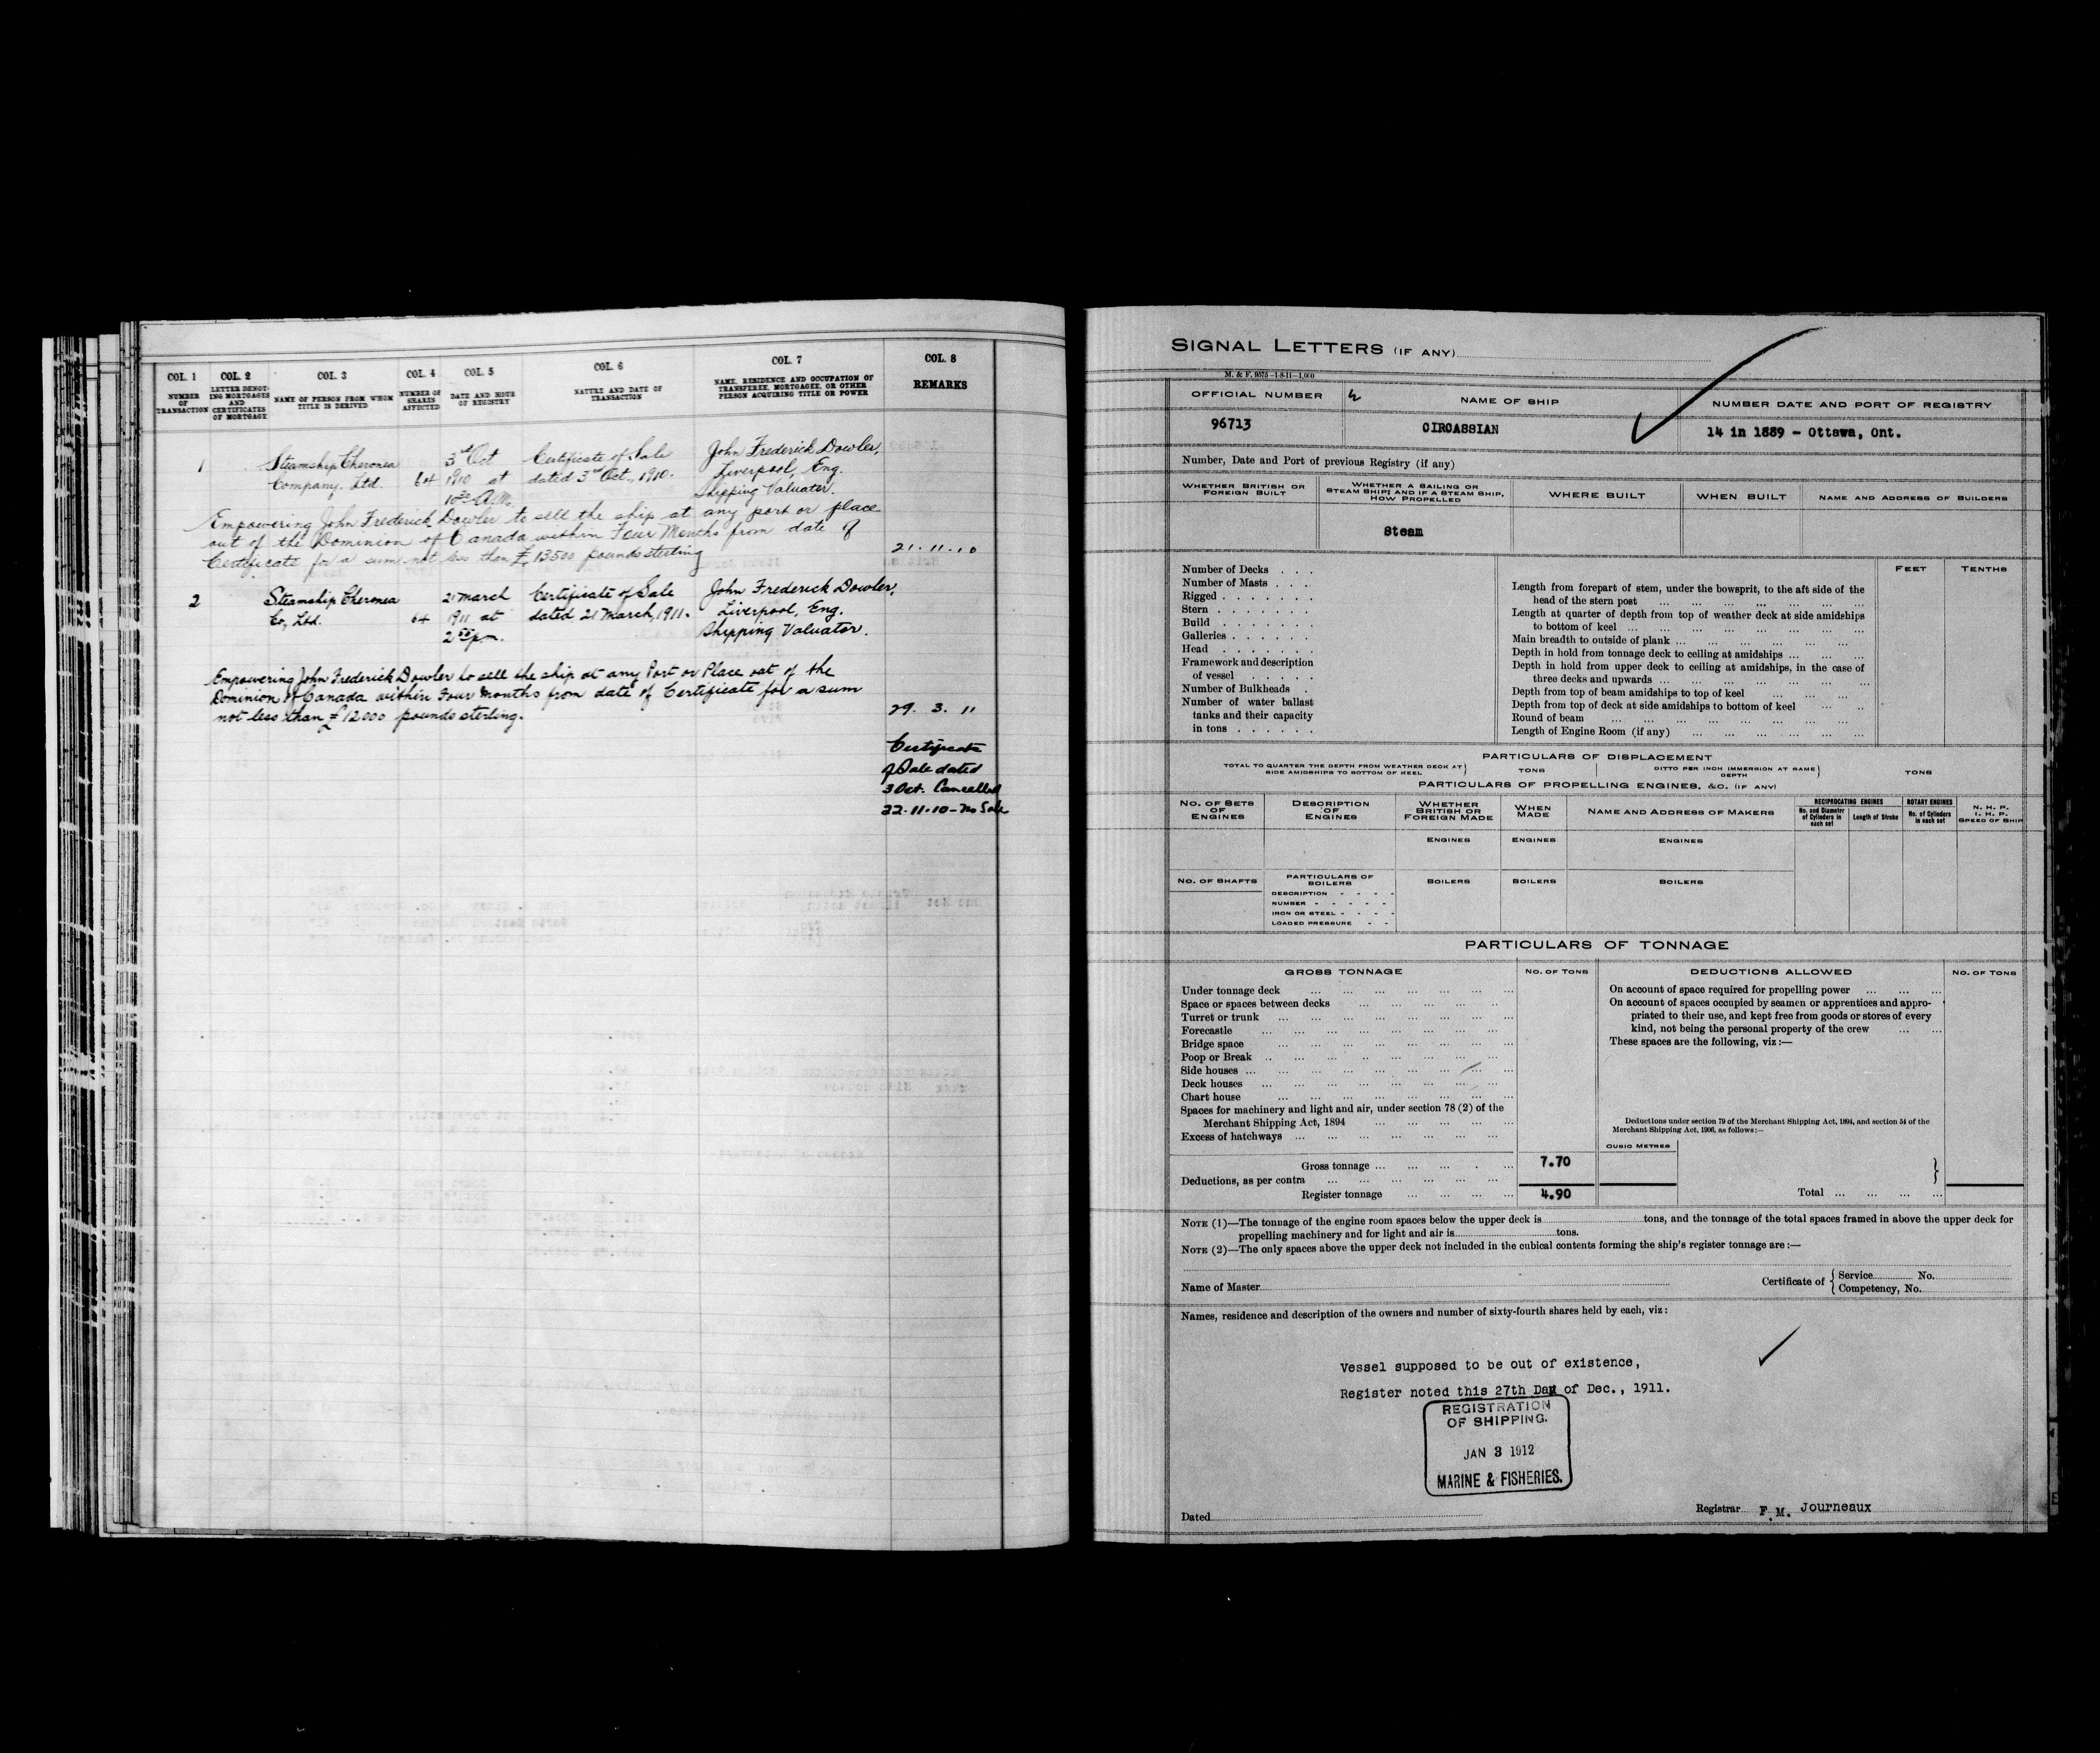 COL. 1
COL. 2
COL. 3
COL. 4
COL. 5
COL. 6
COL. 7
COL. 8
NUMBER OF TRANSACTION
LETTER DENOTING MORTGAGES AND CERTIFICATES OF MORTGAGE
NAME OF PERSON FROM WHOM TITLE IS DERIVED
NUMBER OF SHARES AFFECTED
DATE AND HOUR OF REGISTRY
NATURE AND DATE OF TRANSACTION
NAME, RESIDENCE AND OCCUPATION OF TRANSFEREE, MORTGAGEE, OR OTHER PERSON ACQUIRING TITLE OR POWER
REMARKS
1 Steamship Cheronea 3rd Oct Certificate of Sale John Frederick Dowler,
Company. Ltd. 64 1910 at dated 3rd Oct., 1910. Liverpool, Eng.
10 30 A.M. Shipping Valuater.
Empowering John Frederick Dowler to sell the ship at any port or place
out of the Dominion of Canada within Four Months from date of
Certificate for a sum not less than £13500 pounds sterling 21.11.10
2 Steamship Cheronea 21 March Certificate of Sale John Frederick Dowler,
Co, Ltd. 64 1911 at dated 21 March, 1911. Liverpool, Eng.
Shipping Valuator.
Empowering John Frederick Dowler to sell the ship at any Port or Place out of the
Dominion of Canada within Four Months from date of Certificate for a sum
not less than £12000 pounds sterling. 29. 3. 11
Certificate
of Sale dated
3 Oct. Cancelled
22.11.10 - No Sale
SIGNAL LETTERS (IF ANY)
M. & F. 9575-1-8-11-1,000
OFFICIAL NUMBER
NAME OF SHIP
NUMBER DATE AND PORT OF REGISTRY
96713
CIRCASSIAN
14 in 1889 - Ottawa, Ont.
Number, Date and Port of previous Registry (if any)
WHETHER BRITISH OR FOREIGN BUILT
WHETHER A SAILING OR STEAM SHIP; AND IF A STEAM SHIP, HOW PROPELLED
WHERE BUILT
WHEN BUILT
NAME AND ADDRESS OF BUILDERS
Steam
FEET TENTHS
Number of Decks . . .
Number of Masts . . .
Rigged . . . . . . .
Stern . . . . . . .
Build . . . . . . .
Galleries . . . . . .
Head . . . . . . .
Framework and description
of vessel . . . . .
Number of Bulkheads .
Number of water ballast
tanks and their capacity
in tons . . . . . .
Length from forepart of stem, under the bowsprit, to the aft side of the
head of the stern post
Length at quarter of depth from top of weather deck at side amidships
to bottom of keel
Main breadth to outside of plank
Depth in hold from tonnage deck to ceiling at amidships
Depth in hold from upper deck to ceiling at amidships, in the case of
three decks and upwards
Depth from top of beam amidships to top of keel
Depth from top of deck at side amidships to bottom of keel
Round of beam
Length of Engine Room (if any)
PARTICULARS OF DISPLACEMENT
TOTAL TO QUARTER THE DEPTH FROM WEATHER DECK AT SIDE AMIDSHIPS TO BOTTOM OF KEEL } TONS { DITTO PER INCH IMMERSION AT SAME DEPTH } TONS
PARTICULARS OF PROPELLING ENGINES, &C. (IF ANY)
NO. OF SETS OF ENGINES
DESCRIPTION OF ENGINES
WHETHER BRITISH OR FOREIGN MADE
WHEN MADE
NAME AND ADDRESS OF MAKERS
RECIPROCATING ENGINES
No. and Diameter of Cylinders in each set
Length of Stroke
ROTARY ENGINES
No. of Cylinders in each set
N. H. P.
I. H. P.
SPEED OF SHIP
ENGINES ENGINES ENGINES
NO. OF SHAFTS
PARTICULARS OF BOILERS
BOILERS BOILERS BOILERS
DESCRIPTION
NUMBER
IRON OR STEEL
LOADED PRESSURE
PARTICULARS OF TONNAGE
GROSS TONNAGE
NO. OF TONS
DEDUCTIONS ALLOWED
NO. OF TONS
Under tonnage deck
Space or spaces between decks
Turret or trunk
Forecastle
Bridge space
Poop or Break
Side houses
Deck houses
Chart house
Spaces for machinery and light and air, under section 78 (2) of the
Merchant Shipping Act, 1894
Excess of hatchways
Gross tonnage 7.70
Deductions, as per contra
Register tonnage 4.90
On account of space required for propelling power
On account of spaces occupied by seamen or apprentices and appro-
priated to their use, and kept free from goods or stores of every
kind, not being the personal property of the crew
These spaces are the following, viz :—
Deductions under section 79 of the Merchant Shipping Act, 1894, and section 54 of the
Merchant Shipping Act, 1906, as follows:—
CUBIC METRES
Total
NOTE (1)—The tonnage of the engine room spaces below the upper deck is tons, and the tonnage of the total spaces framed in above the upper deck for
propelling machinery and for light and air is tons.
NOTE (2)—The only spaces above the upper deck not included in the cubical contents forming the ship's register tonnage are :—
Name of Master
Certificate of { Service No.
Competency, No.
Names, residence and description of the owners and number of sixty-fourth shares held by each, viz :
Vessel supposed to be out of existence,
Register noted this 27th Day of Dec., 1911.
REGISTRATION
OF SHIPPING.
JAN 3 1912
MARINE & FISHERIES.
Dated
Registrar F.M. Journeaux